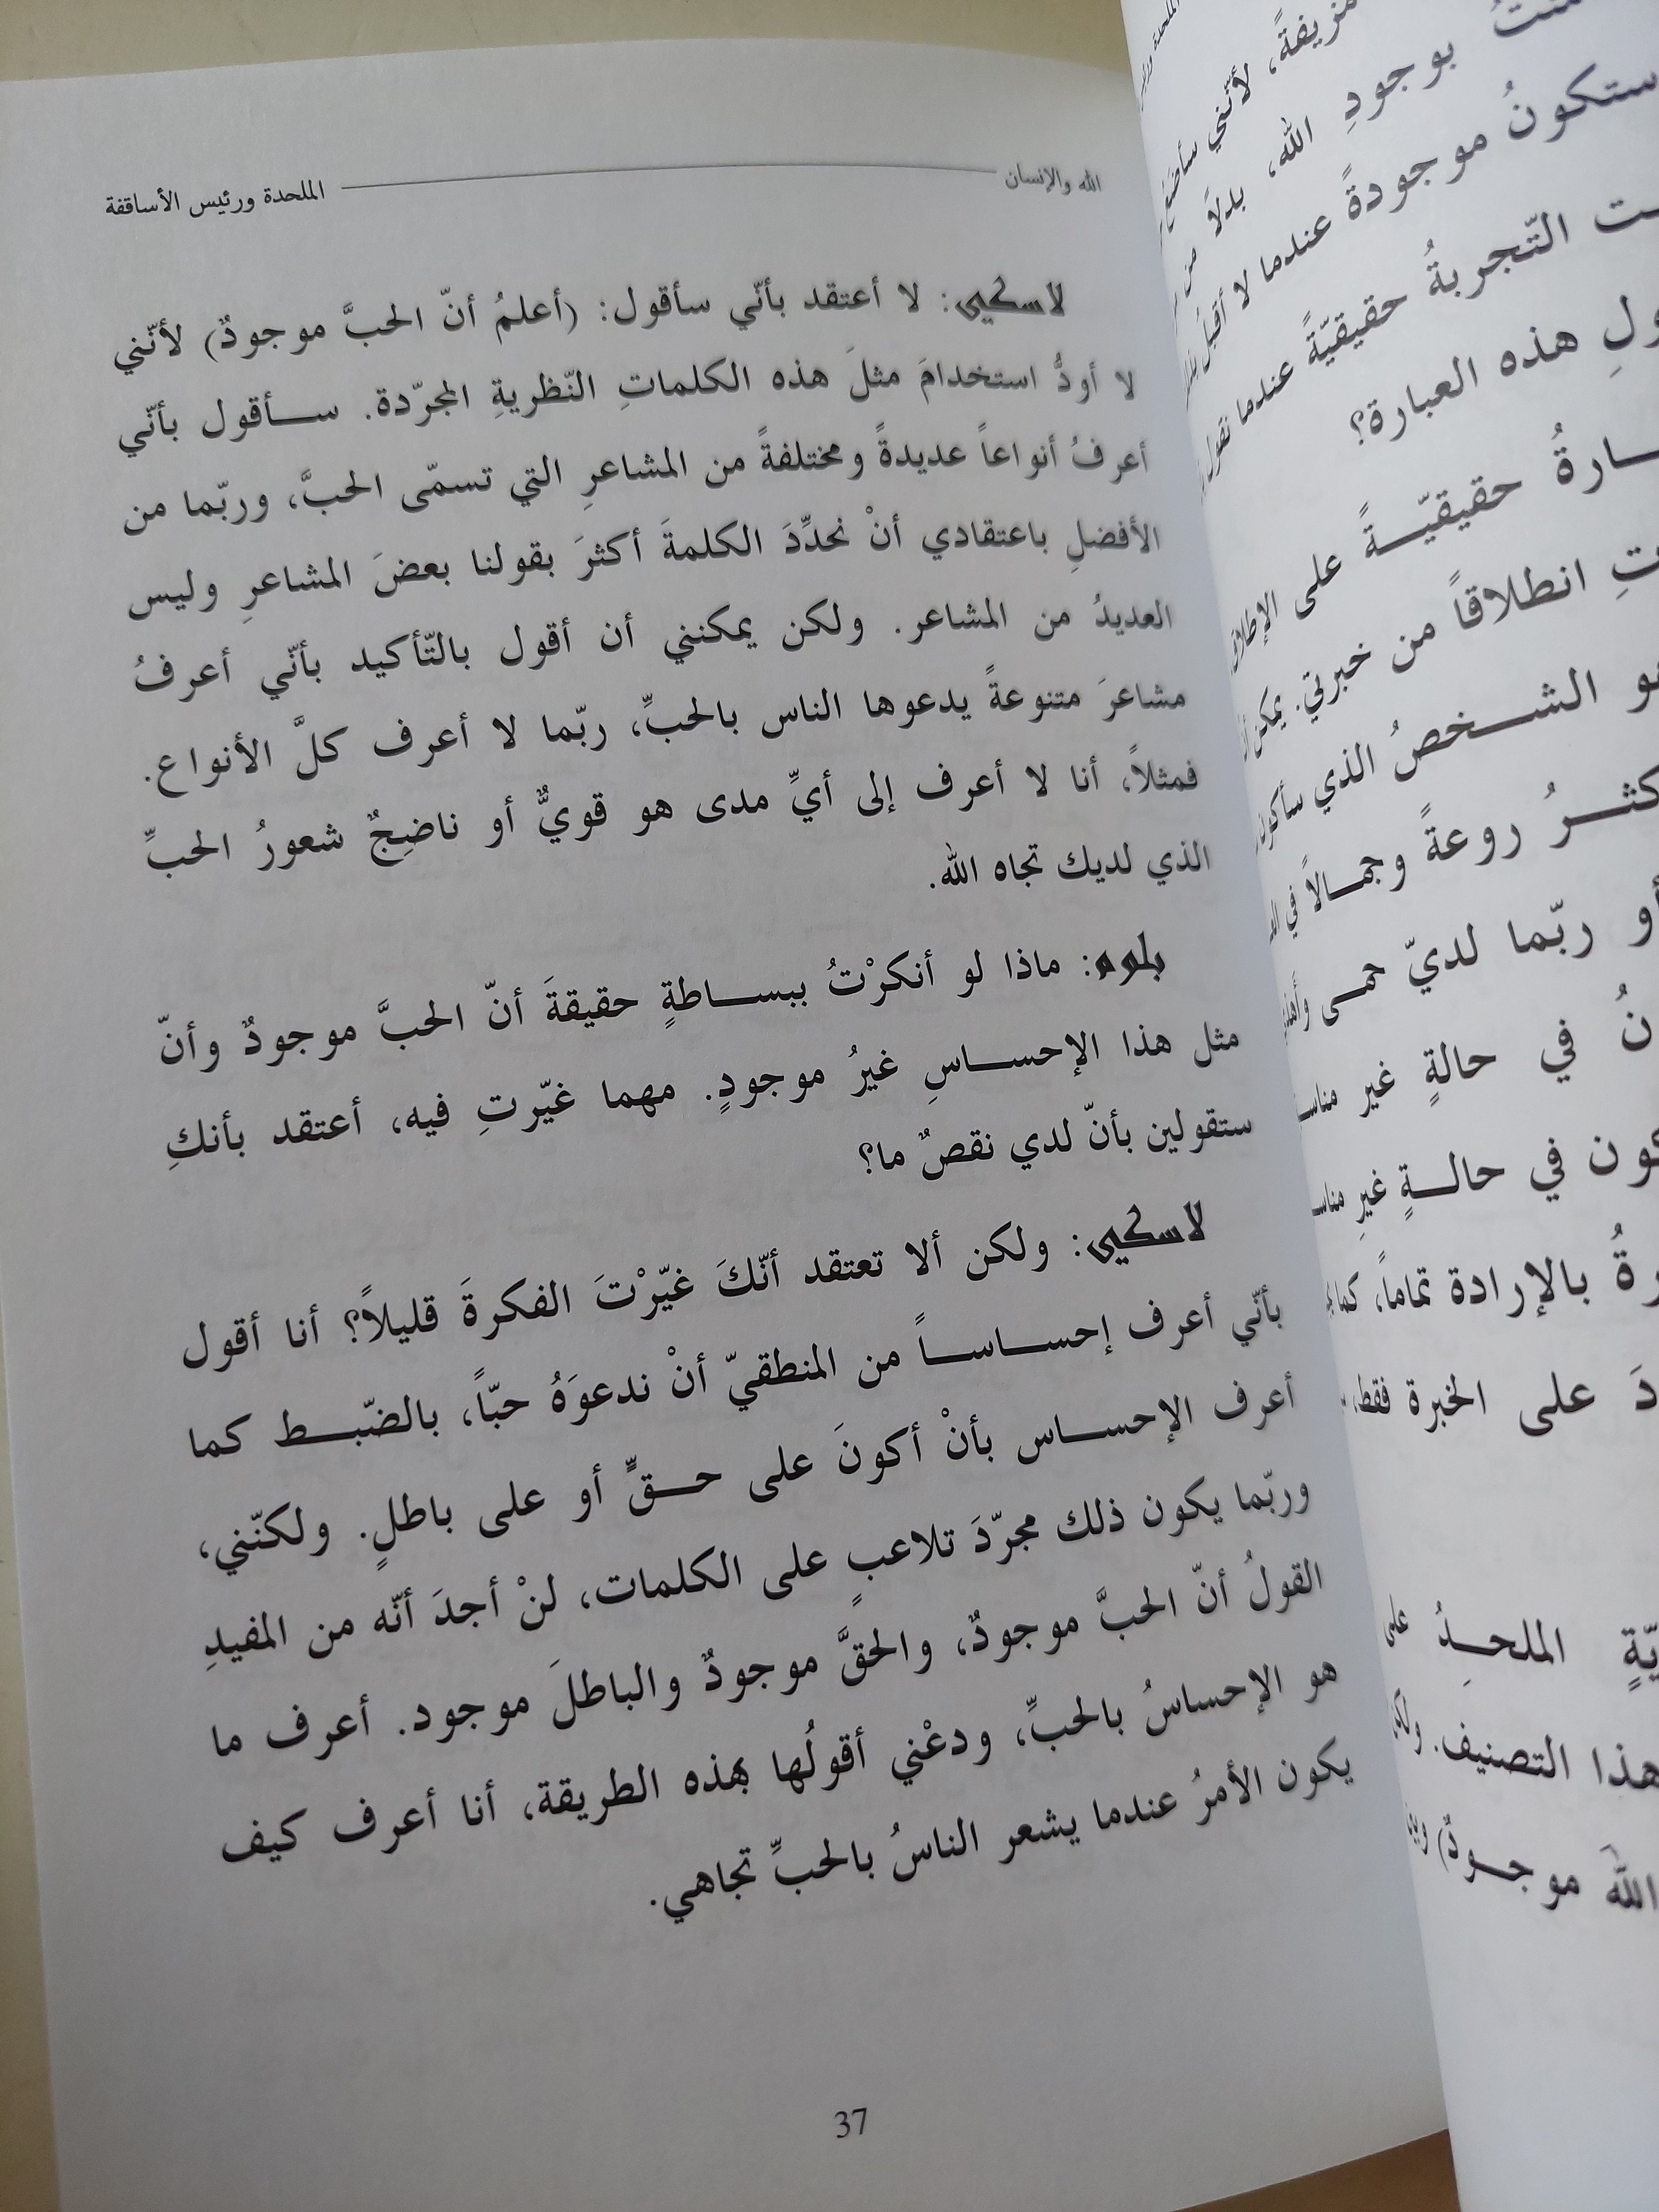 الله والإنسان الملحدة ورئيس الأساقفة
لاسكي: لا أعتقد بأنّني سأقول: (أعلمُ أنّ الحبَّ موجودٌ) لأنّني
لا أودُّ استخدامَ مثلَ هذه الكلماتِ النّظريةِ المجرّدة. ســأقول بأنّني
أعرفُ أنواعاً عديدةً ومختلفةً من المشاعرِ التي تسمّى الحبَّ، وربّما من
الأفضلِ باعتقادي أنْ نحدِّدَ الكلمةَ أكثرَ بقولنا بعضَ المشاعرِ وليس
العديدُ من المشاعر. ولكن يمكنني أن أقول بالتّأكيد بأنّني أعرفُ
مشاعرَ متنوعةً يدعوها الناس بالحبِّ، ربّما لا أعرف كلَّ الأنواع.
فمثلاً، أنا لا أعرف إلى أيِّ مدى هو قويٌّ أو ناضِجٌ شعورُ الحبِّ
الذي لديك تجاه الله.
بلوم: ماذا لو أنكرْتُ ببســاطةٍ حقيقةَ أنّ الحبَّ موجودٌ وأنّ
مثل هذا الإحســاسِ غيرُ موجودٍ. مهما غيّرتِ فيه، أعتقد بأنكِ
ستقولين بأنّ لدي نقصٌ ما؟
لاسكي: ولكن ألا تعتقد أنّكَ غيّرْتَ الفكرةَ قليلاً؟ أنا أقول
بأنّني أعرف إحســاســاً من المنطقيّ أنْ ندعوَهُ حبّاً، بالضّبــط كما
أعرف الإحســاس بأنْ أكونَ على حــقٍّ أو على باطلٍ. ولكنّني،
وربّما يكون ذلك مجرّدَ تلاعبٍ على الكلمات، لنْ أجدَ أنّه من المفيدِ
القولُ أنّ الحبَّ موجودٌ، والحقَّ موجودٌ والباطلَ موجود. أعرف ما
هو الإحساسُ بالحبِّ، ودعْني أقولُها بهذه الطريقة، أنا أعرف كيف
يكون الأمرُ عندما يشعر الناسُ بالحبِّ تجاهي.
37
بوجودِ الله، بدلاً من
ستكونُ موجودةً عندما لا أقبلُ
التّجربةُ حقيقيّةً عندما نقول
هذه العبارة؟
حقيقيّــةً على الإطلاق
انطلاقاً من خبرتي. يمكن
الشــخصُ الذي سأكون
روعةً وجمــالاً في
أو ربّما لديّ حمــى
في حالةٍ غير
في حالــةٍ غيرِ
بالإرادة تماماً، كما
على الخبرة فقط،
الملحــدُ على
هذا التصنيف.
اللهَ موجــودٌ)